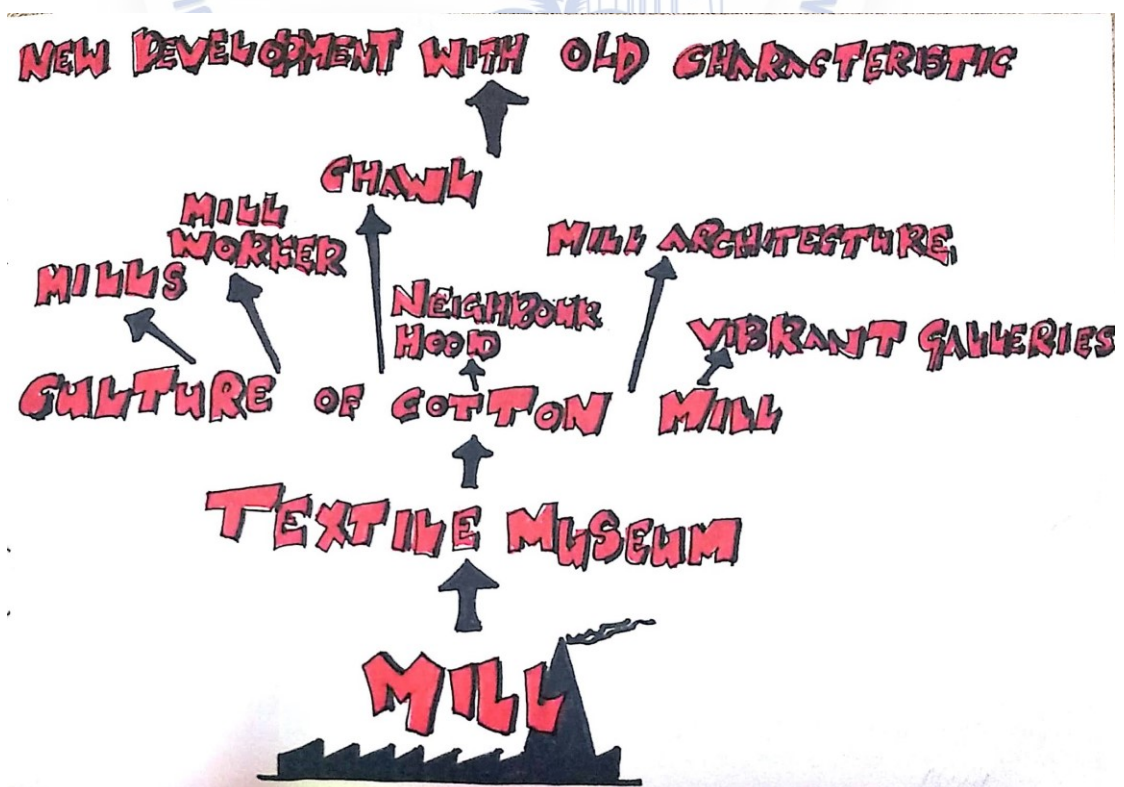 NEW DEVELOPMENT WITH OLD CHARACTERISTIC
CHAWL
MILL
WORKER
MILLS
MILL ARCHITECTURE
NEIGHBOUR
HOOD
VIBRANT GALLERIES
CULTURE OF COTTON MILL
TEXTILE MUSEUM
MILL